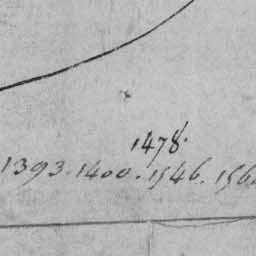 1478.
1393. 1400. 1546. 156